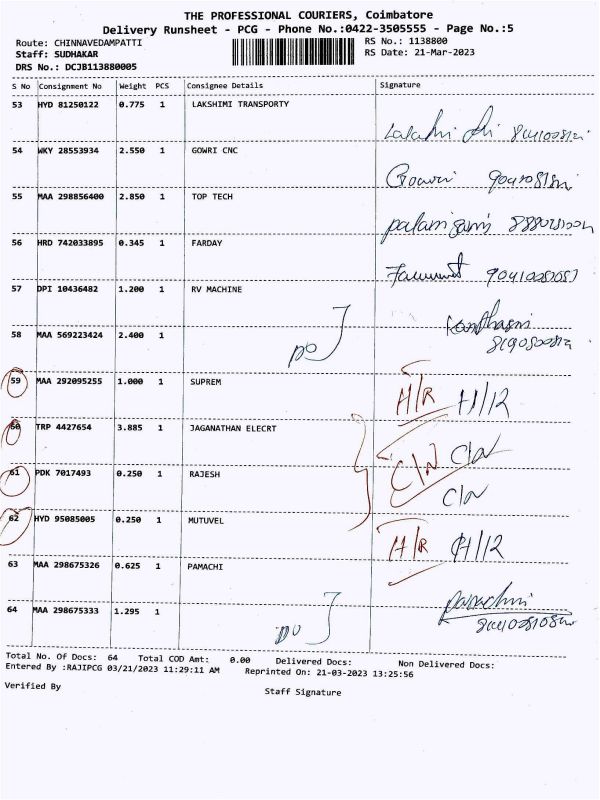 THE PROFESSIONAL COURIERS, Coimbatore
Delivery Runsheet - PCG - Phone No.:0422-3505555 - Page No.:5
Route: CHINNAVEDAMPATTI RS No.: 1138800
Staff: SUDHAKAR RS Date: 21-Mar-2023
DRS No.: DCJB113880005
S No Consignment No Weight PCS Consignee Details Signature
53 HYD 81250122 0.775 1 LAKSHIMI TRANSPORTY
54 WKY 28553934 2.550 1 GOWRI CNC
Gowri
55 MAA 298856400 2.850 1 TOP TECH
56 HRD 742033895 0.345 1 FARDAY
57 DPI 10436482 1.200 1 RV MACHINE
58 MAA 569223424 2.400 1 DO
59 MAA 292095255 1.000 1 SUPREM H/R
60 TRP 4427654 3.885 1 JAGANATHAN ELECRT C/N C/N
61 PDK 7017493 0.250 1 RAJESH C/N
62 HYD 95085005 0.250 1 MUTUVEL H/R
63 MAA 298675326 0.625 1 PAMACHI
64 MAA 298675333 1.295 1 DO
Total No. Of Docs: 64 Total COD Amt: 0.00 Delivered Docs: Non Delivered Docs:
Entered By :RAJIPCG 03/21/2023 11:29:11 AM Reprinted On: 21-03-2023 13:25:56
Verified By Staff Signature